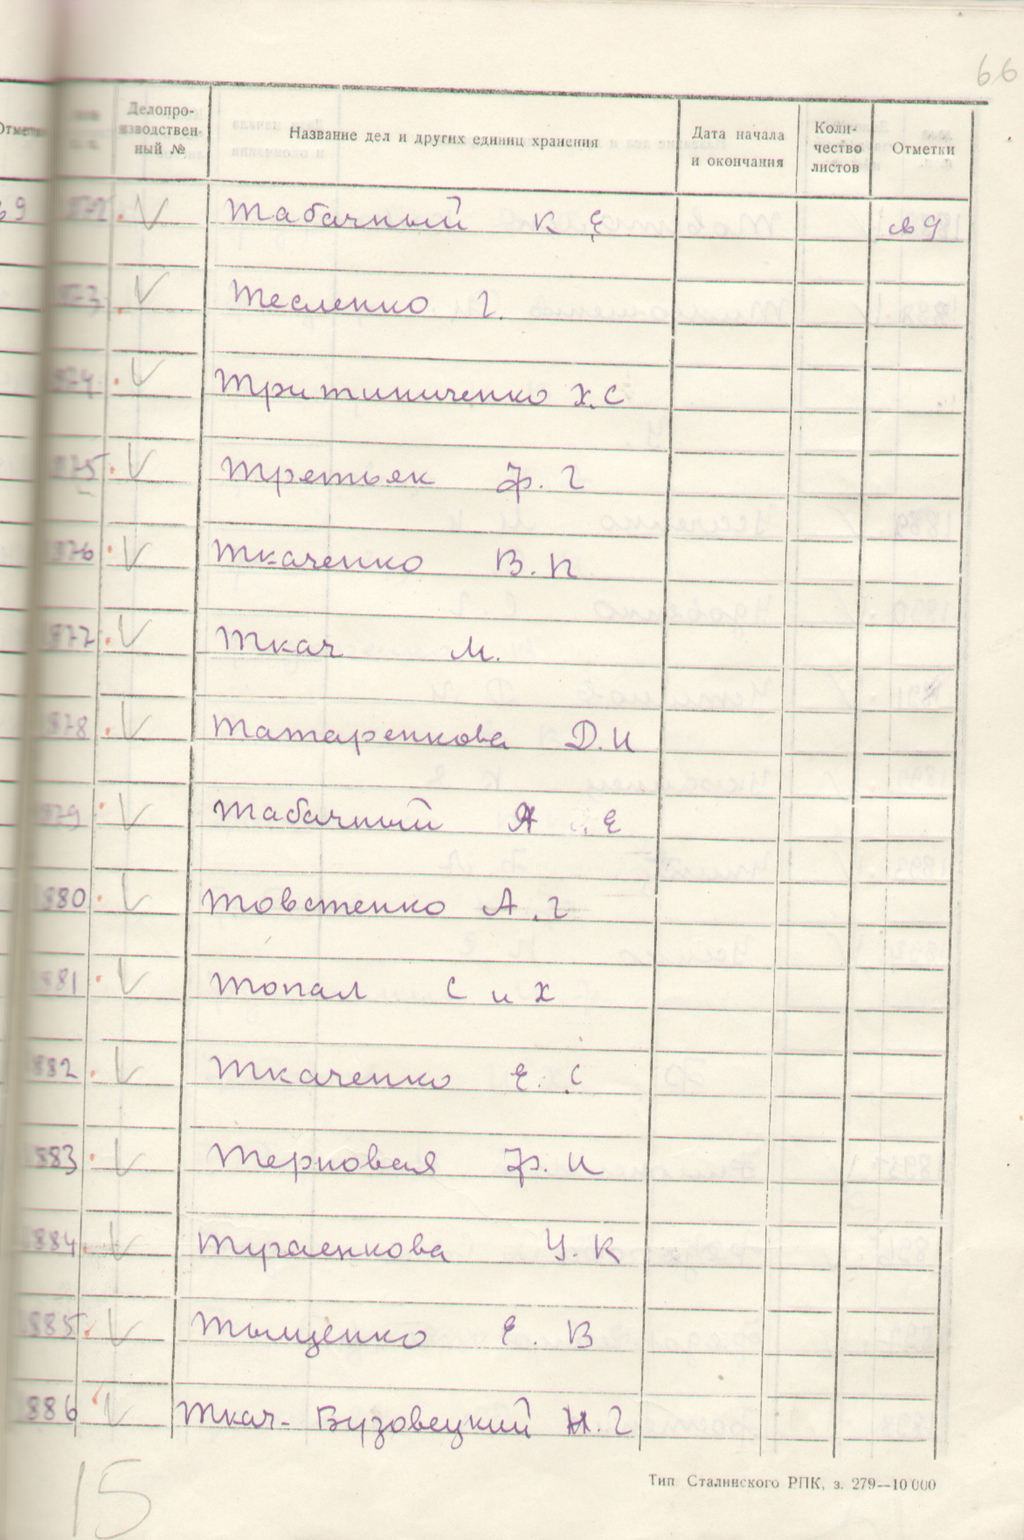 66
Отметки
Делопро-
изводствен-
ный №
Название дел и других единиц хранения
Дата начала
и окончания
Коли-
чество
листов
Отметки
872 V Табачный К Е
873 V Тесленко Г.
874 V Тритиниченко Х.С
875 V Третьяк Ф. Г
876 V Ткаченко В. П
877 V Ткач М.
878 V Татаренкова Д. И
879 V Табачный Я. Е
880 V Товстенко А. Г
881 V Топал С и Х
882 V Ткаченко Е. С
883 V Терновая Ф. И
884 V Тугаенкова У. К
885 V Тыщенко Е. В
886 V Ткач- Бузовецкий Н. Г
15
Тип Сталинского РПК, з. 279—10 000